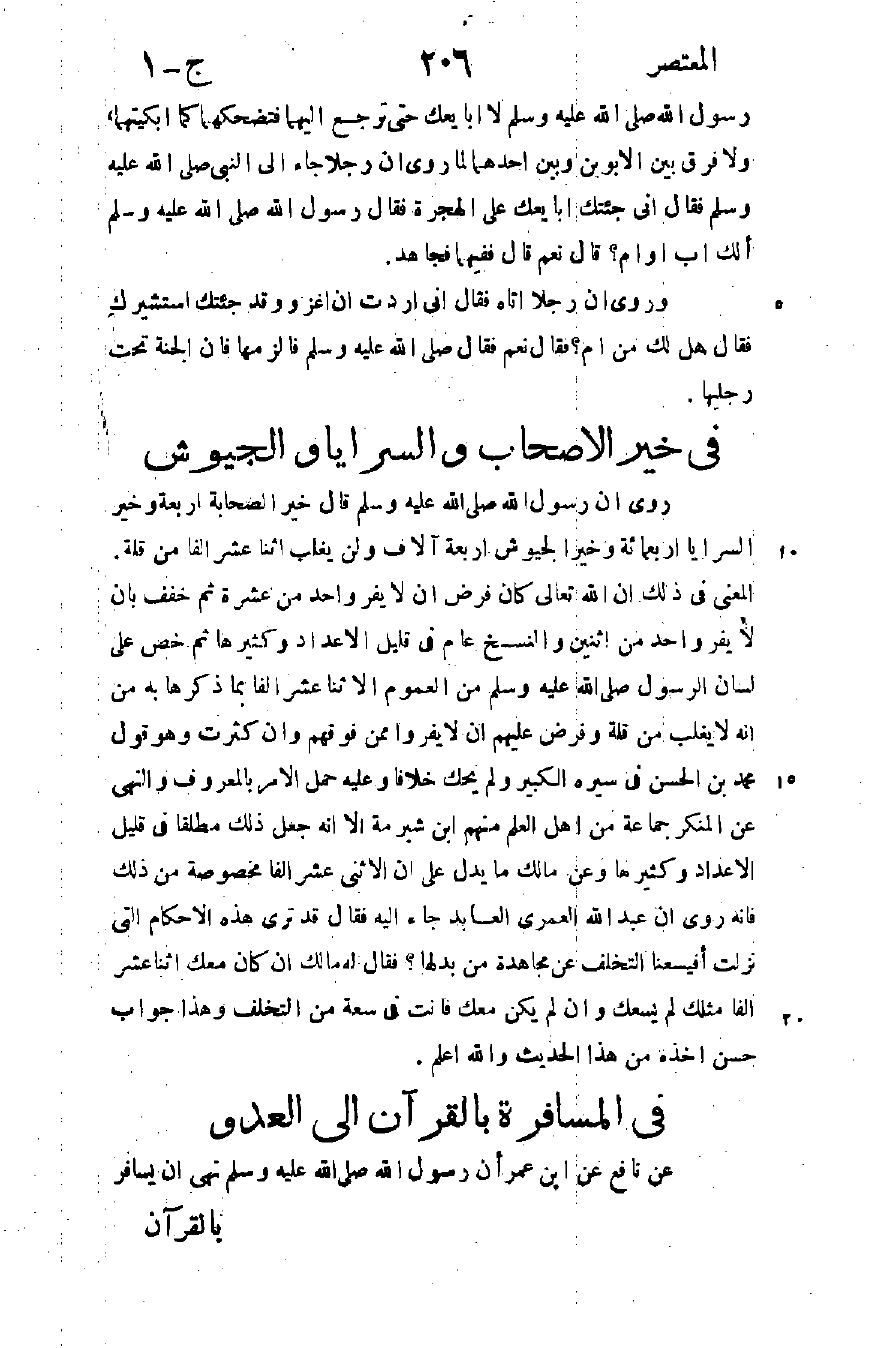 المعتصر ٢٠٦ ج-١
رسول الله صلى الله عليه وسلم لا ابايعك حتى ترجع اليهما فتضحكهما كما ابكيتهما،
ولا فرق بين الابوين وبين احدهما لما روى ان رجلا جاء الى النبى صلى الله عليه
وسلم فقال انى جئتك ابايعك على الهجرة فقال رسول الله صلى الله عليه وسلم
ألك اب اوام؟ قال نعم قال ففيهما فجاهد.
وروى ان رجلا اتاه فقال انى اردت ان اغزو وقد جئتك استشيرك ٥
فقال هل لك من ام؟ فقال نعم فقال صلى الله عليه وسلم فالزمها فان الجنة تحت
رجليها .
فى خير الاصحاب والسرايا والجيوش
روى ان رسول الله صلى الله عليه وسلم قال خير الصحابة اربعة وخير
السرايا اربعمائة وخير الجيوش اربعة آلاف ولن يغلب اثنا عشر الفا من قلة. ١٠
المعنى فى ذلك ان الله تعالى كان فرض ان لا يفر واحد من عشرة ثم خفف بان
لا يفر واحد من اثنين والنسخ عام فى قليل الاعداد وكثيرها ثم خص على
لسان الرسول صلى الله عليه وسلم من العموم الاثنا عشر الفا بما ذكرها به من
انه لا يغلب من قلة وفرض عليهم ان لا يفروا ممن فوقهم وان كثرت وهو قول
محمد بن الحسن فى سيره الكبير ولم يحك خلافا وعليه حمل الامر بالمعروف والنهى ١٥
عن المنكر جماعة من اهل العلم منهم ابن شبرمة الا انه جعل ذلك مطلقا فى قليل
الاعداد وكثيرها وعن مالك ما يدل على ان الاثنى عشر الفا مخصوصة من ذلك
فانه روى ان عبد الله العمرى العابد جاء اليه فقال قد ترى هذه الاحكام التى
نزلت أفيسعنا التخلف عن مجاهدة من بدلها؟ فقال له مالك ان كان معك اثنا عشر
الفا مثلك لم يسعك وان لم يكن معك فانت فى سعة من التخلف وهذا جواب ٢٠
حسن اخذه من هذا الحديث والله اعلم .
فى المسافرة بالقرآن الى العدو
عن نافع عن ابن عمر أن رسول الله صلى الله عليه وسلم نهى ان يسافر
بالقرآن